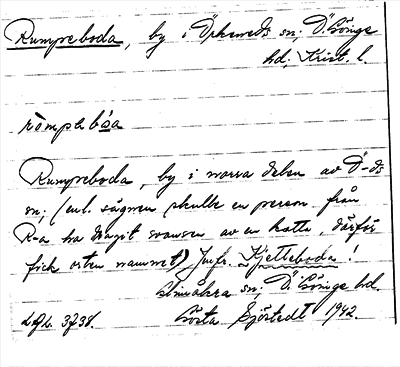 Rumpeboda, by i Örkeneds sn; Ö. Göinge
hd; Krist. l.
römpabóa
Rumpeboda, by i norra delen av Ö-ds
sn; (enl. sägnen skulle en person från
R-a ha dragit svansen av en katta, därför
fick orten namnet) Jmfr. Kjetteboda!
Glimåkra sn; Ö. Göinge hd.
LGL. 3738. Gösta Sjöstedt 1942.